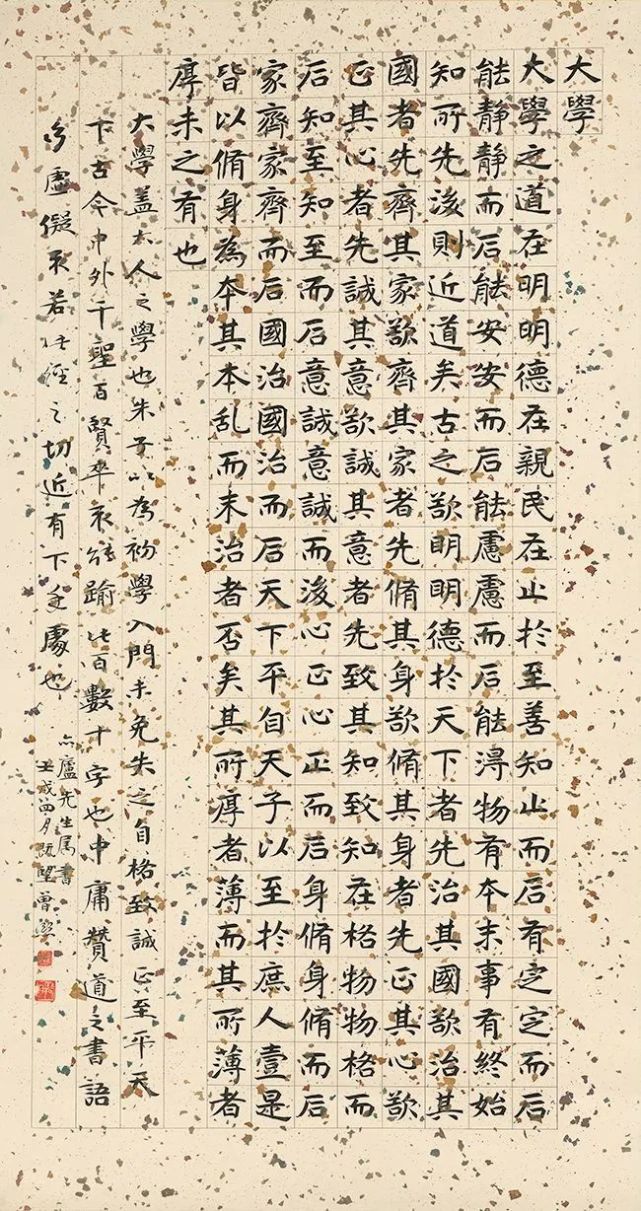 大學
大學之道在明明德在親民在止於至善知止而后有定定而后
能静静而后能安安而后能慮慮而后能得物有本末事有終始
知所先後則近道矣古之欲明明德於天下者先治其國欲治其
國者先齊其家欲齊其家者先脩其身欲脩其身者先正其心欲
正其心者先誠其意欲誠其意者先致其知致知在格物物格而
后知至知至而后意誠意誠而後心正心正而后身脩身脩而后
家齊家齊而后國治國治而后天下平自天子以至於庶人壹是
皆以脩身為本其本乱而末治者否矣其所厚者薄而其所薄者
厚未之有也
大學蓋大人之學也朱子以為初學入門未免失之自格致誠正至平天
下古今中外千聖百賢卒不能踰此百數十字也中庸贊道之書語
多虛儗不若此經之切近有下手處也
廬先生属書
壬戌四月既望曾熙